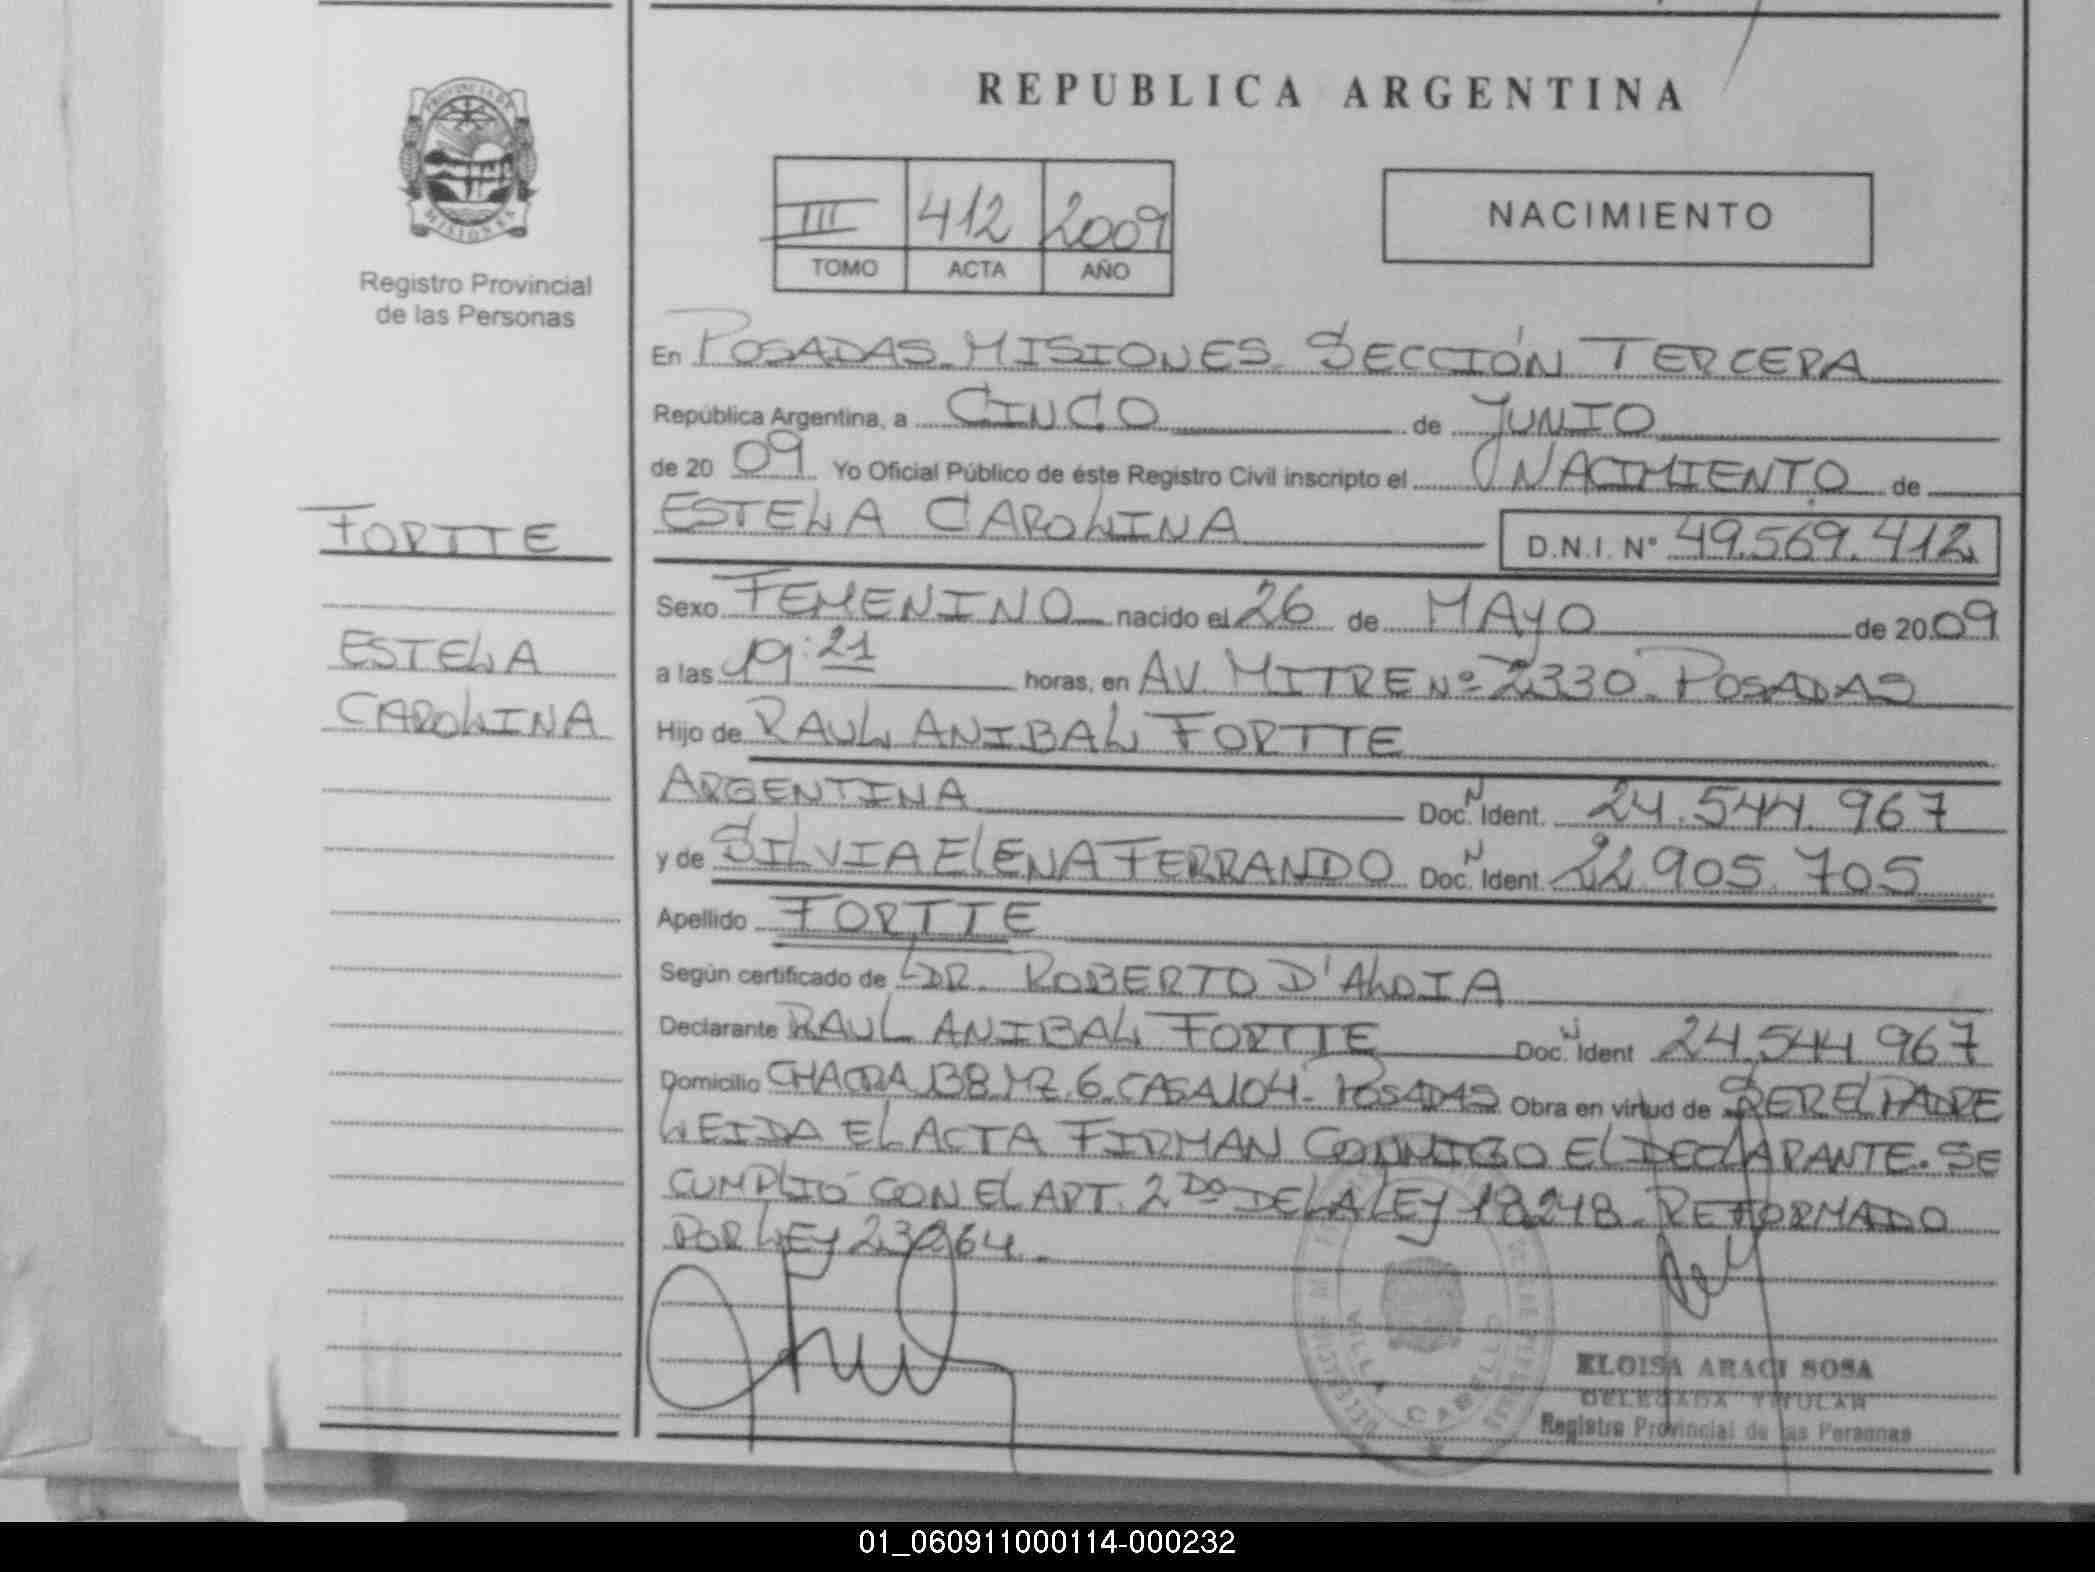 REPUBLICA ARGENTINA
PROVINCIA DE
MISIONES
Registro Provincial
de las Personas
III 412 2009
TOMO ACTA AÑO
NACIMIENTO
En POSADAS - MISIONES - SECCIÓN TERCERA
República Argentina, a CINCO de JUNIO
de 20 09 Yo Oficial Público de éste Registro Civil inscripto el NACIMIENTO de
ESTELA CAROLINA D.N.I. N° 49.569.412
FORTTE
ESTELA
CAROLINA
Sexo FEMENINO nacido el 26 de MAYO de 20 09
a las 19:21 horas, en AV. MITRE Nº 2330 - POSADAS
Hijo de RAUL ANIBAL FORTTE
ARGENTINA Doc. N Ident. 24.544.967
y de SILVIA ELENA FERRANDO Doc. N Ident. 22.905.705
Apellido FORTTE
Según certificado de DR. ROBERTO D'ALDIA
Declarante RAUL ANIBAL FORTTE Doc. N Ident 24.544.967
Domicilio CHACRA 138 MZ. 6 CASA 104 - POSADAS Obra en virtud de SER EL PADRE
LEIDA EL ACTA FIRMAN CONMIGO EL DECLARANTE. SE
CUMPLIÓ CON EL ART. 2DO DE LA LEY 18248 - REFORMADO
POR LEY 23264 -
ELOISA ARACI SOSA
DELEGADA TITULAR
Registro Provincial de las Personas
CABELLO
01_060911000114-000232